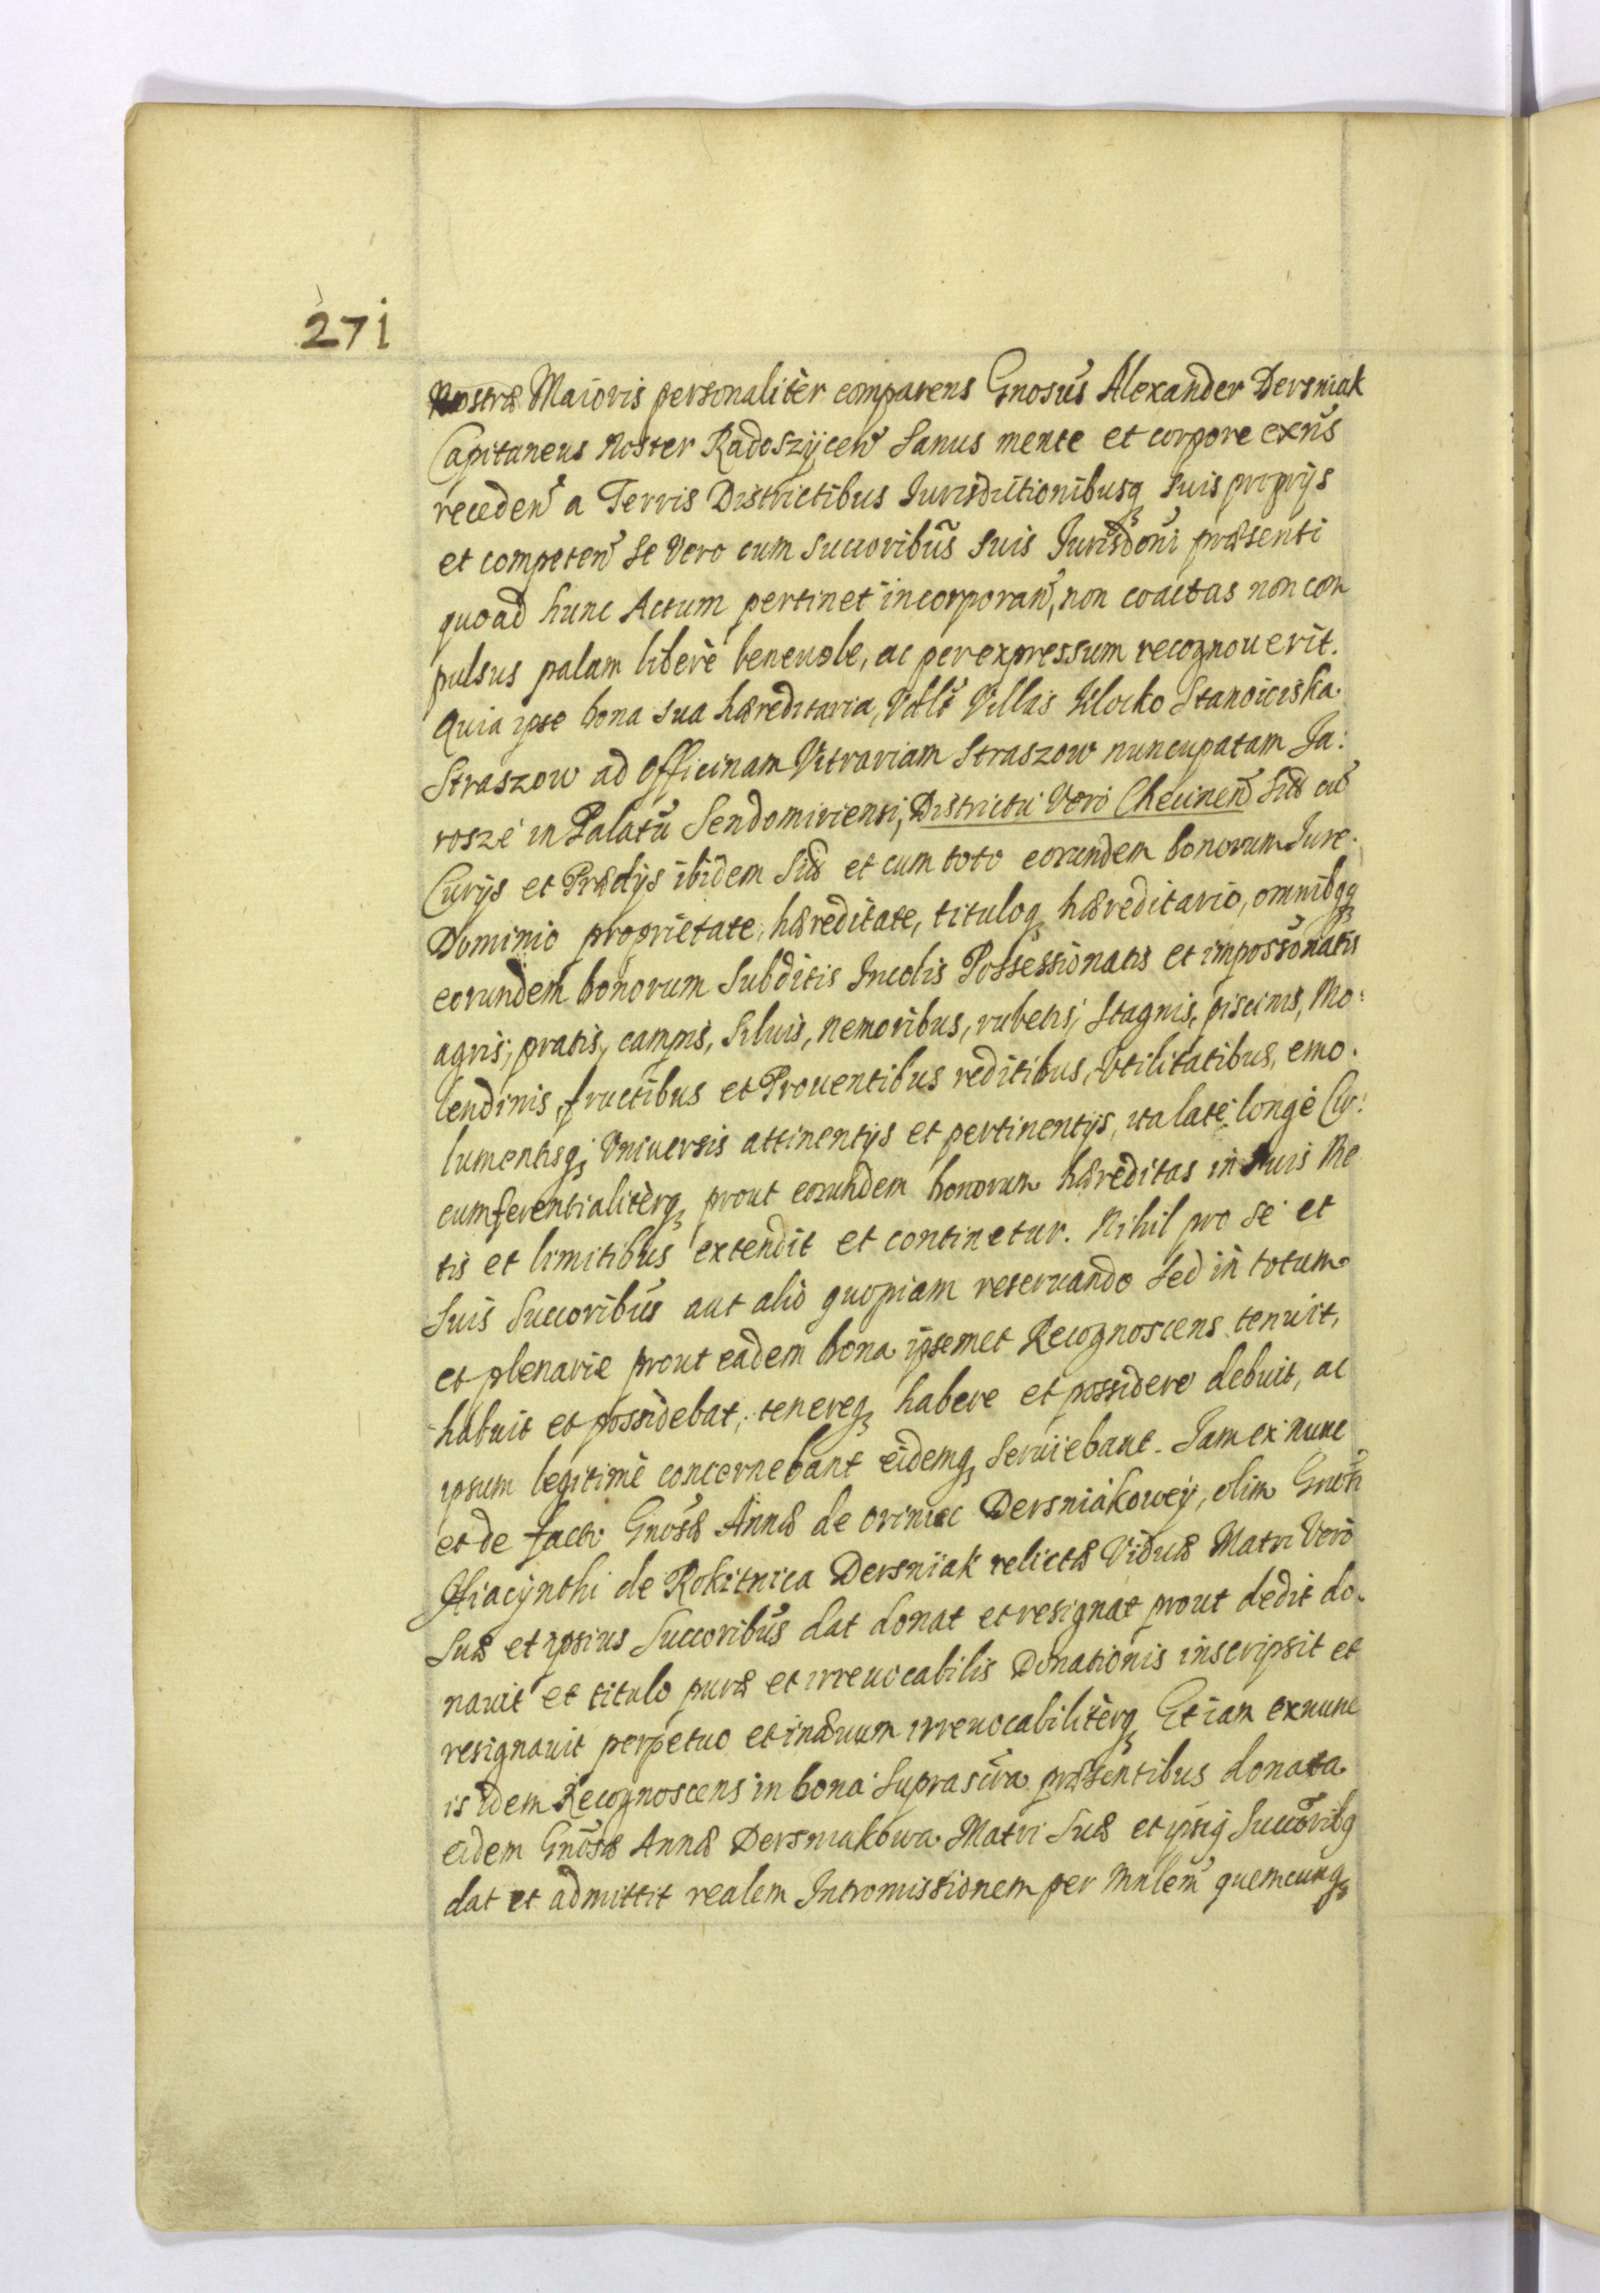 271
Nostræ Maioris personalitèr comparens Gnosus Alexander Dersniak
Capitaneus Noster Radoszycen Sanus mente et corpore exñs
receden a Terris Districtibus Iurisdictionibusq suis proprijs
et competen se Vero cum Succoribus suis Iurisdoni præsenti
quoad hunc Actum pertinet incorporan, non coactas non com
pulsus palam liberè beneuole, ac perexpressum recognouerit.
Quia ipse bona sua hæreditaria, Vdlt Villas Klocko Stanoiciska
Straszow ad officinam Vitrariam Straszow nuncupatam Ja:
rosze in Palatu Sendomiriensi, Districtu Vero Checinen sita cu
Curijs et Prædijs ibidem sitis et cum toto eorundem bonorum Iure
Dominio proprietate, hæreditate, tituloq hæreditario, omnibqq
eorundem bonorum Subditis Incolis Possessionatis et impossonatis
agris, pratis, campis, Siluis, nemoribus, rubetis, Stagnis, piscinis, Mo:
lendinis, fructibus et Prouentibus reditibus, Vtilitatibus, emo.
lumentisq, Vniuersis attinentijs et pertinentijs, ita latè longè Cir:
cumferentialitèrq prout eorundem bonorum hæreditas in suis Me
tis et limitibus extendit et continetur. Nihil pro se et
suis Succoribus aut alio quopiam reseruando sed in totum
et plenarie prout eadem bona ipsemet Recognoscens tenuit,
habuit et possidebat, tenereq habere et possidere debuit, ac
ipsum legitimè concernebant eidemq seruiebant. Iam ex nunc
et de facto Gnosæ Annæ de oriniec Dersniakowey, olim Gnosi
Hiacÿnthi de Rokitnica Dersniak relictæ Viduæ Matri Vero
suæ et ipsius Succoribus dat donat et resignat prout dedit do.
nauit et titulo puræ et irreuocabilis Donationis inscripsit et
resignauit perpetuo et in æuum irreuocabilitèrq Et iam ex nunc
is idem Recognoscens in bona suprascra præsentibus donata
eidem Gnosæ Annæ Dersniakowa Matri suæ et ipsiq Succoribq
dat et admittit realem Intromissionem per Mnlem quemcunq